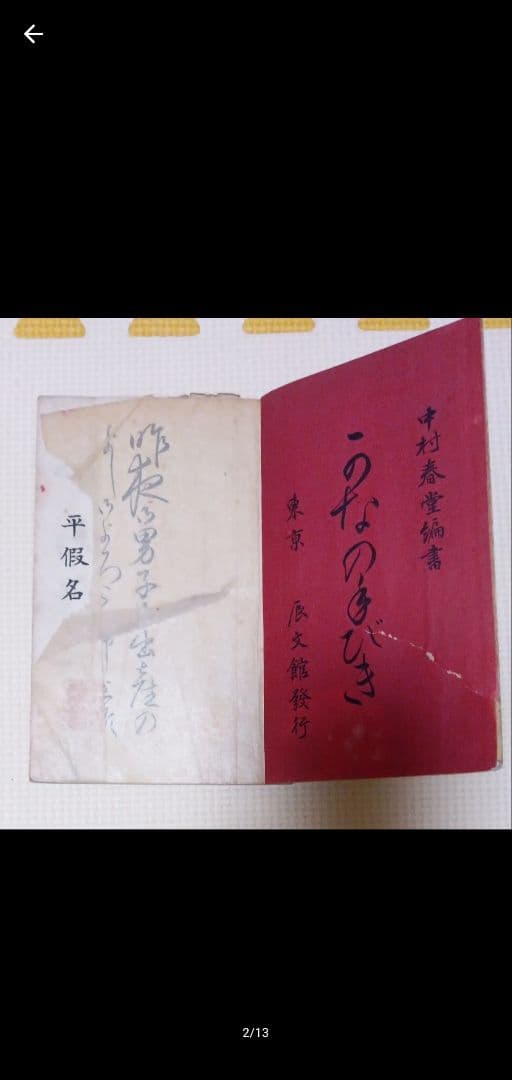 中村春堂編書
かなの手びき
東京 辰文館發行
昨夜御男子御出産の
平假名
2/13